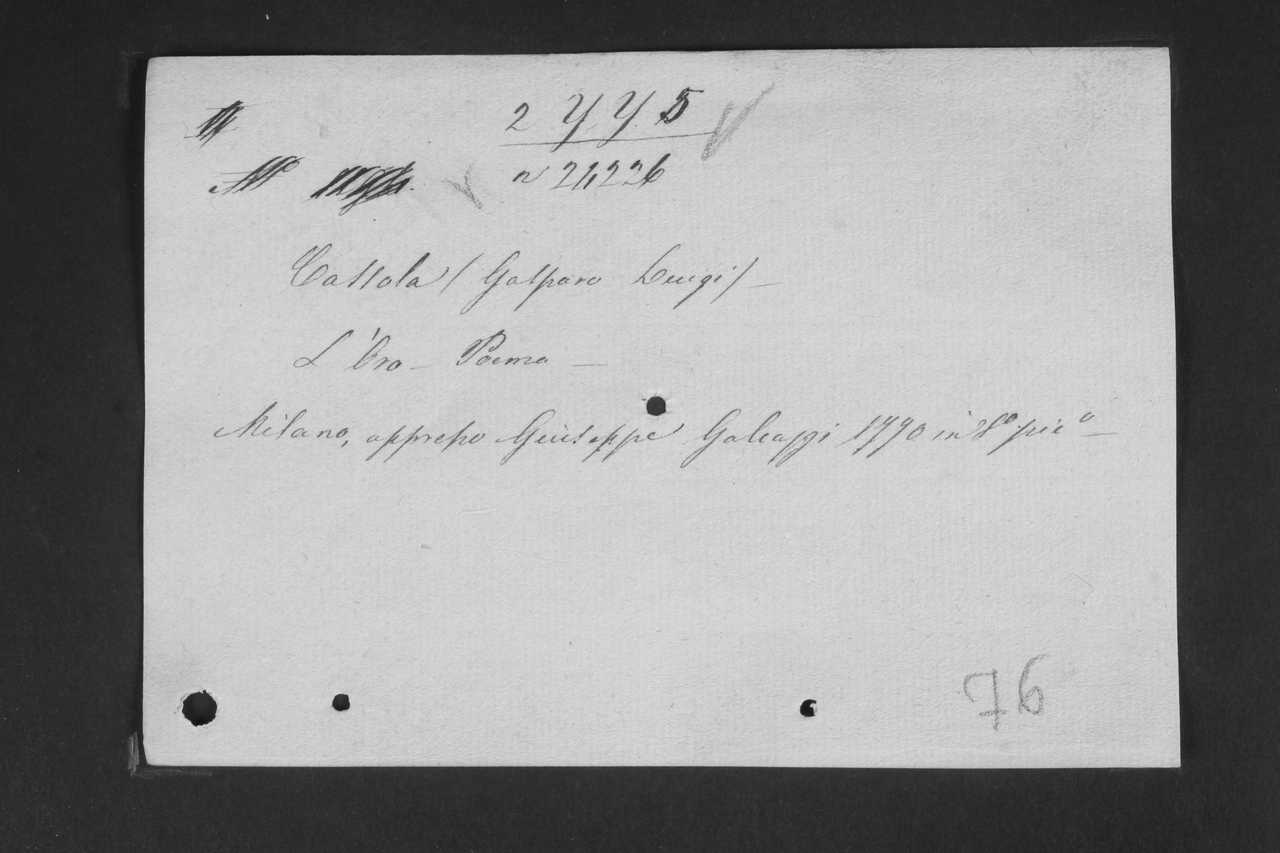 2 Y. Y. 5
n 24226
Cassola (Gasparo Luigi) —
L'Oro — Poema —
Milano, appresso Giuseppe Galeazzi 1790 in 8° pic° —
76